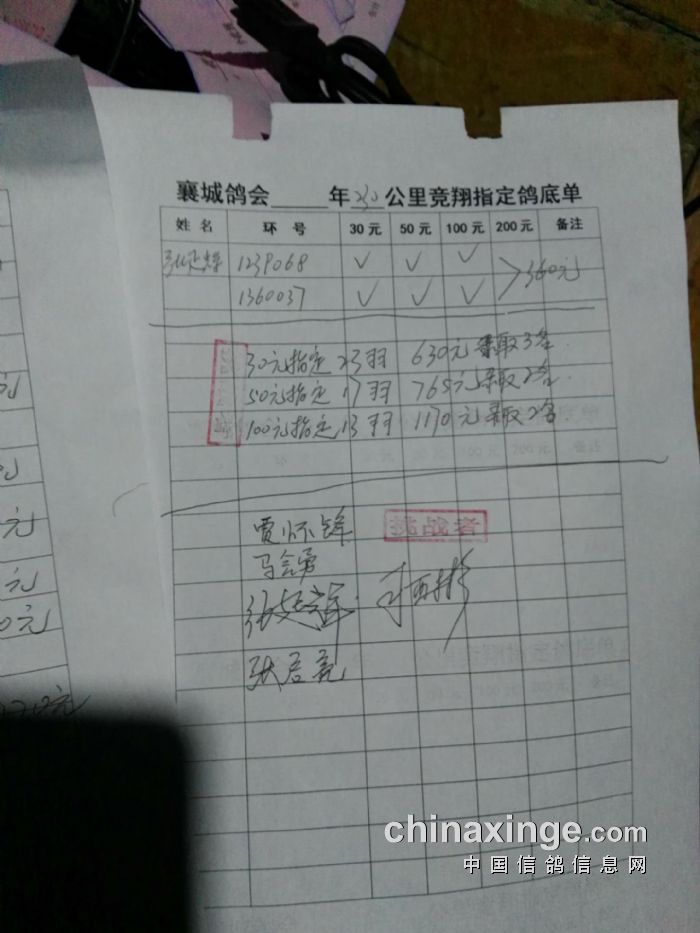 襄城鸽会 年 公里竞翔指定鸽底单
姓名 环号 30元 50元 100元 200元 备注
1239068 ✓ ✓ ✓
360元
1360037 ✓ ✓ ✓
30元指定 23羽 630元 录取3名.
50元指定 17羽 765元 录取2名.
100元指定 13羽 1170元 录取2名.
贾怀锋 挑战者
马会勇
张君亮
chinaxinge.com
中国信鸽信息网